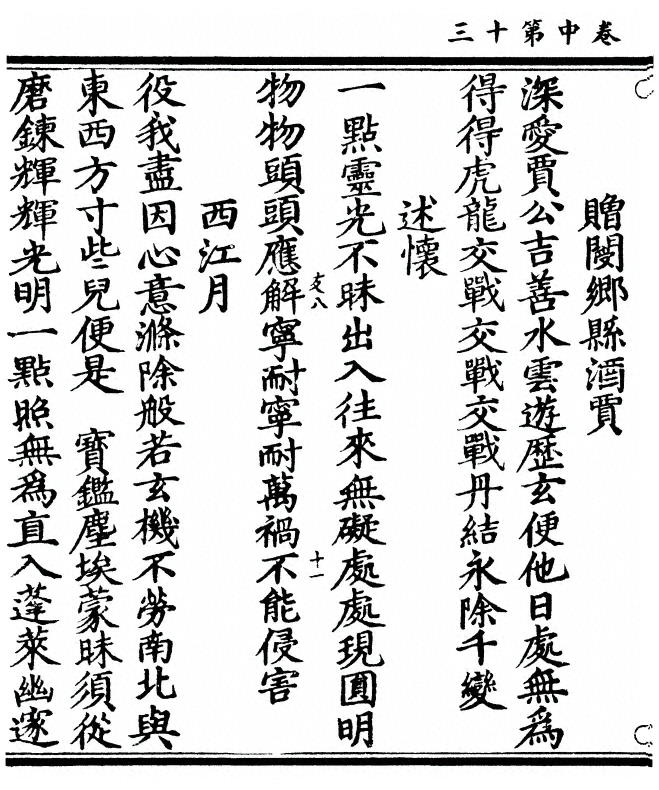 三十第中卷
贈閿鄉縣酒賈
深愛賈公吉善水雲遊歷玄便他日處無爲
得得虎龍交戰交戰交戰丹結永除千變
述懷
一點靈光不昧出入往來無礙處處現圓明
物物頭頭應解寧耐寧耐萬禍不能侵害
支八
十一
西江月
役我盡因心意滌除般若玄機不勞南北與
東西方寸些兒便是　寶鑑塵埃蒙昧須從
磨鍊輝輝光明一點照無爲直入蓬萊幽邃